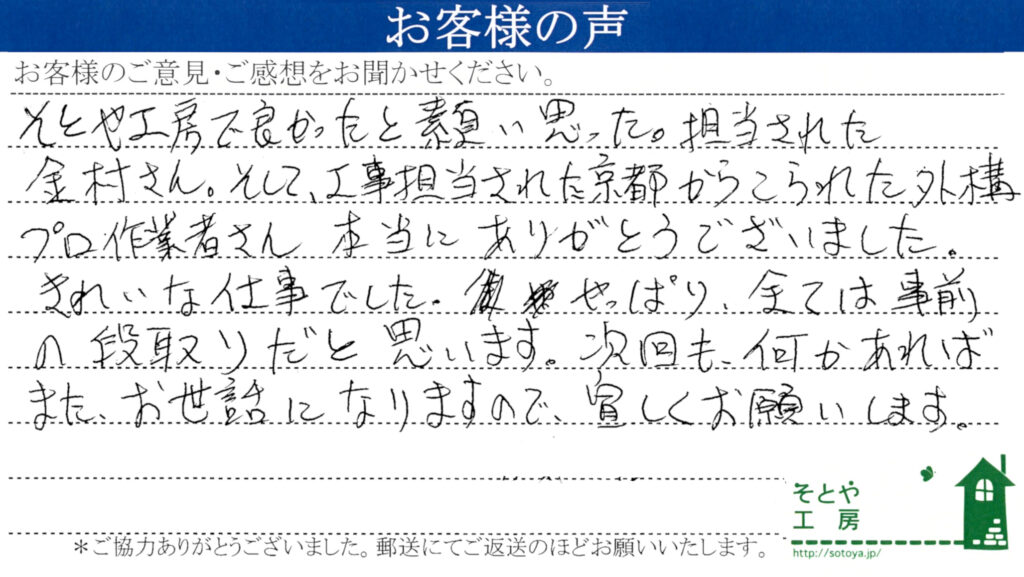 お客様の声
お客様のご意見・ご感想をお聞かせください。
そとや工房で良かったと素直い思った。担当された
金村さん。そして、工事担当された京都からこられた外構
プロ作業者さん 本当に ありがとうございました。
きれいな仕事でした。 やっぱり、全ては事前
の段取りだと思います。次回も、何かあれば
また、お世話になりますので、宜しくお願いします。
そとや
工房
http://sotoya.jp/
＊ご協力ありがとうございました。郵送にてご返送のほどお願いいたします。